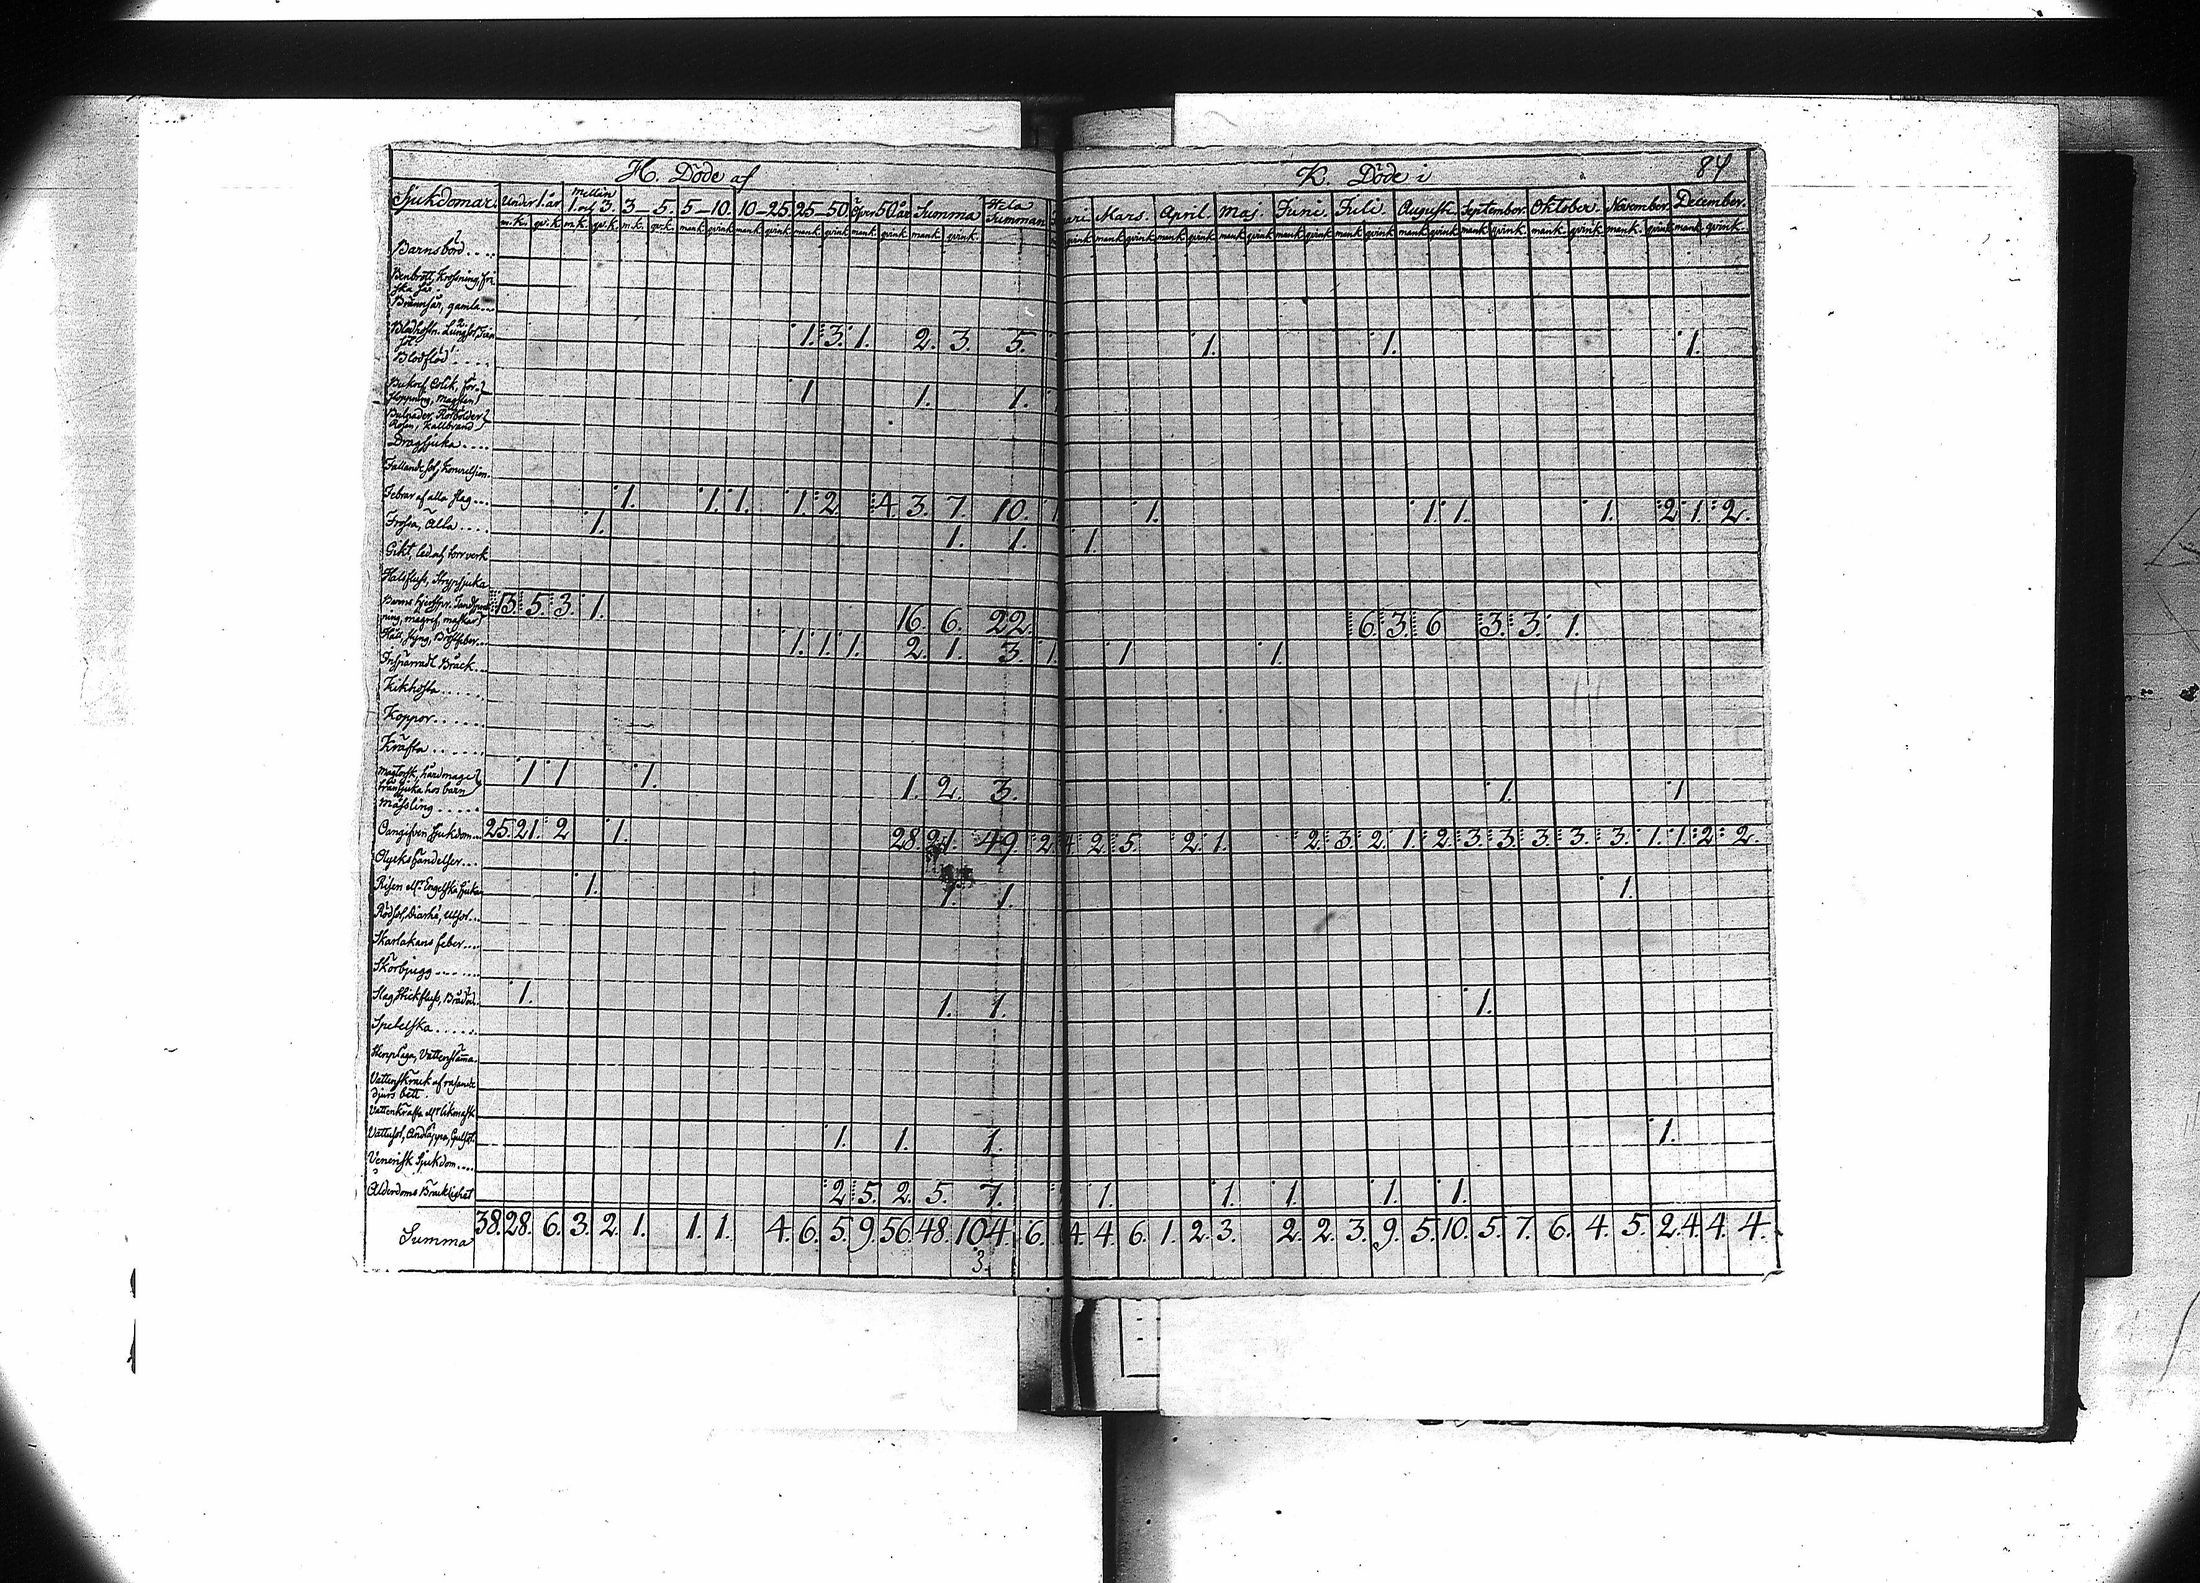 H. Döde af
K. Döde i 84
Sjukdomar. Under 1. år Mellan 1. och 3. 3 — 5. 5 — 10. 10 — 25 25 — 50 Öfver 50 år Summa Hela Summan
ari Mars. April. Maj. Juni. Juli. Augusti September. Oktober. November. December.
m.k. qv.k. m.k. qv.k. m.k. qv.k. mank. qvink. mank. qvink. mank. qvink. mank. qvink. mank. qvink.
qvink. mank. qvink. mank. qvink. mank. qvink. mank. qvink. mank. qvink. mank. qvink. mank. qvink. mank. qvink. mank. qvink. mank. qvink.
Barnsbörd....
Benbrott,
Brännsår, gamla...
Blodhostn. Lungsot, 1. 3. 1. 2. 3. 5. 1. 1. 1.
Blodflöd....
Bukref, Colik, För- 1 1. 1.
stoppning, Magplån
Bulnader, Rötbölder
Rosen, Kallbrand
Dragsjuka....
Fallande sot,
Febrar af alla slag... 1. 1. 1. 1. 2 4. 3. 7. 10. 1. 1. 1. 1. 1. 2 1. 2.
Frossa, Älta.... 1. 1. 1. 1.
Gikt, led och torrverk
Halsfluss, Strypsjuka
13. 5. 3. 1. 16. 6. 22. 6. 3. 6 3. 3. 1.
Håll, Styng, Bröstfeber... 1. 1. 1. 2. 1. 3. 1. 1 1.
Inspärradt Bråck..
Kikhosta.....
Koppor......
Kräfta......
Magtorsk, hårdmage 1 1 1. 1. 2. 3. 1. 1
transjuka hos barn
Mässling.....
Oangifven Sjukdom... 25. 21. 2 1. 28. 21. 49. 2. 4 2. 5. 2. 1. 2. 3. 2. 1. 2. 3. 3. 3. 3. 3. 1. 1. 2. 2.
Olyckshändelser...
Risen elr Engelska Sjukan 1. 1. 1. 1.
Rödsot, Diarhé, Utsot...
Skarlakans feber....
Skörbjugg.......
Slag, Stickfluss, Bråddöd. 1. 1. 1. 1.
Spetelska.....
Stenplåga, Vattenstämma.
Vattenskräck af rasande
djurs bett.
Vattenkräfta elr likmask
Vattusot, Andtäppa, Gulsot. 1. 1. 1. 1.
Venerisk Sjukdom....
Ålderdoms Bräcklighet 2 5. 2. 5. 7. 1. 1. 1. 1. 1.
Summa 38. 28. 6. 3. 2. 1. 1. 1. 4. 6. 5. 9. 56. 48. 104. 6. 4. 4. 6. 1. 2. 3. 2. 2. 3. 9. 5. 10. 5. 7. 6. 4. 5. 2. 4. 4. 4.
3.